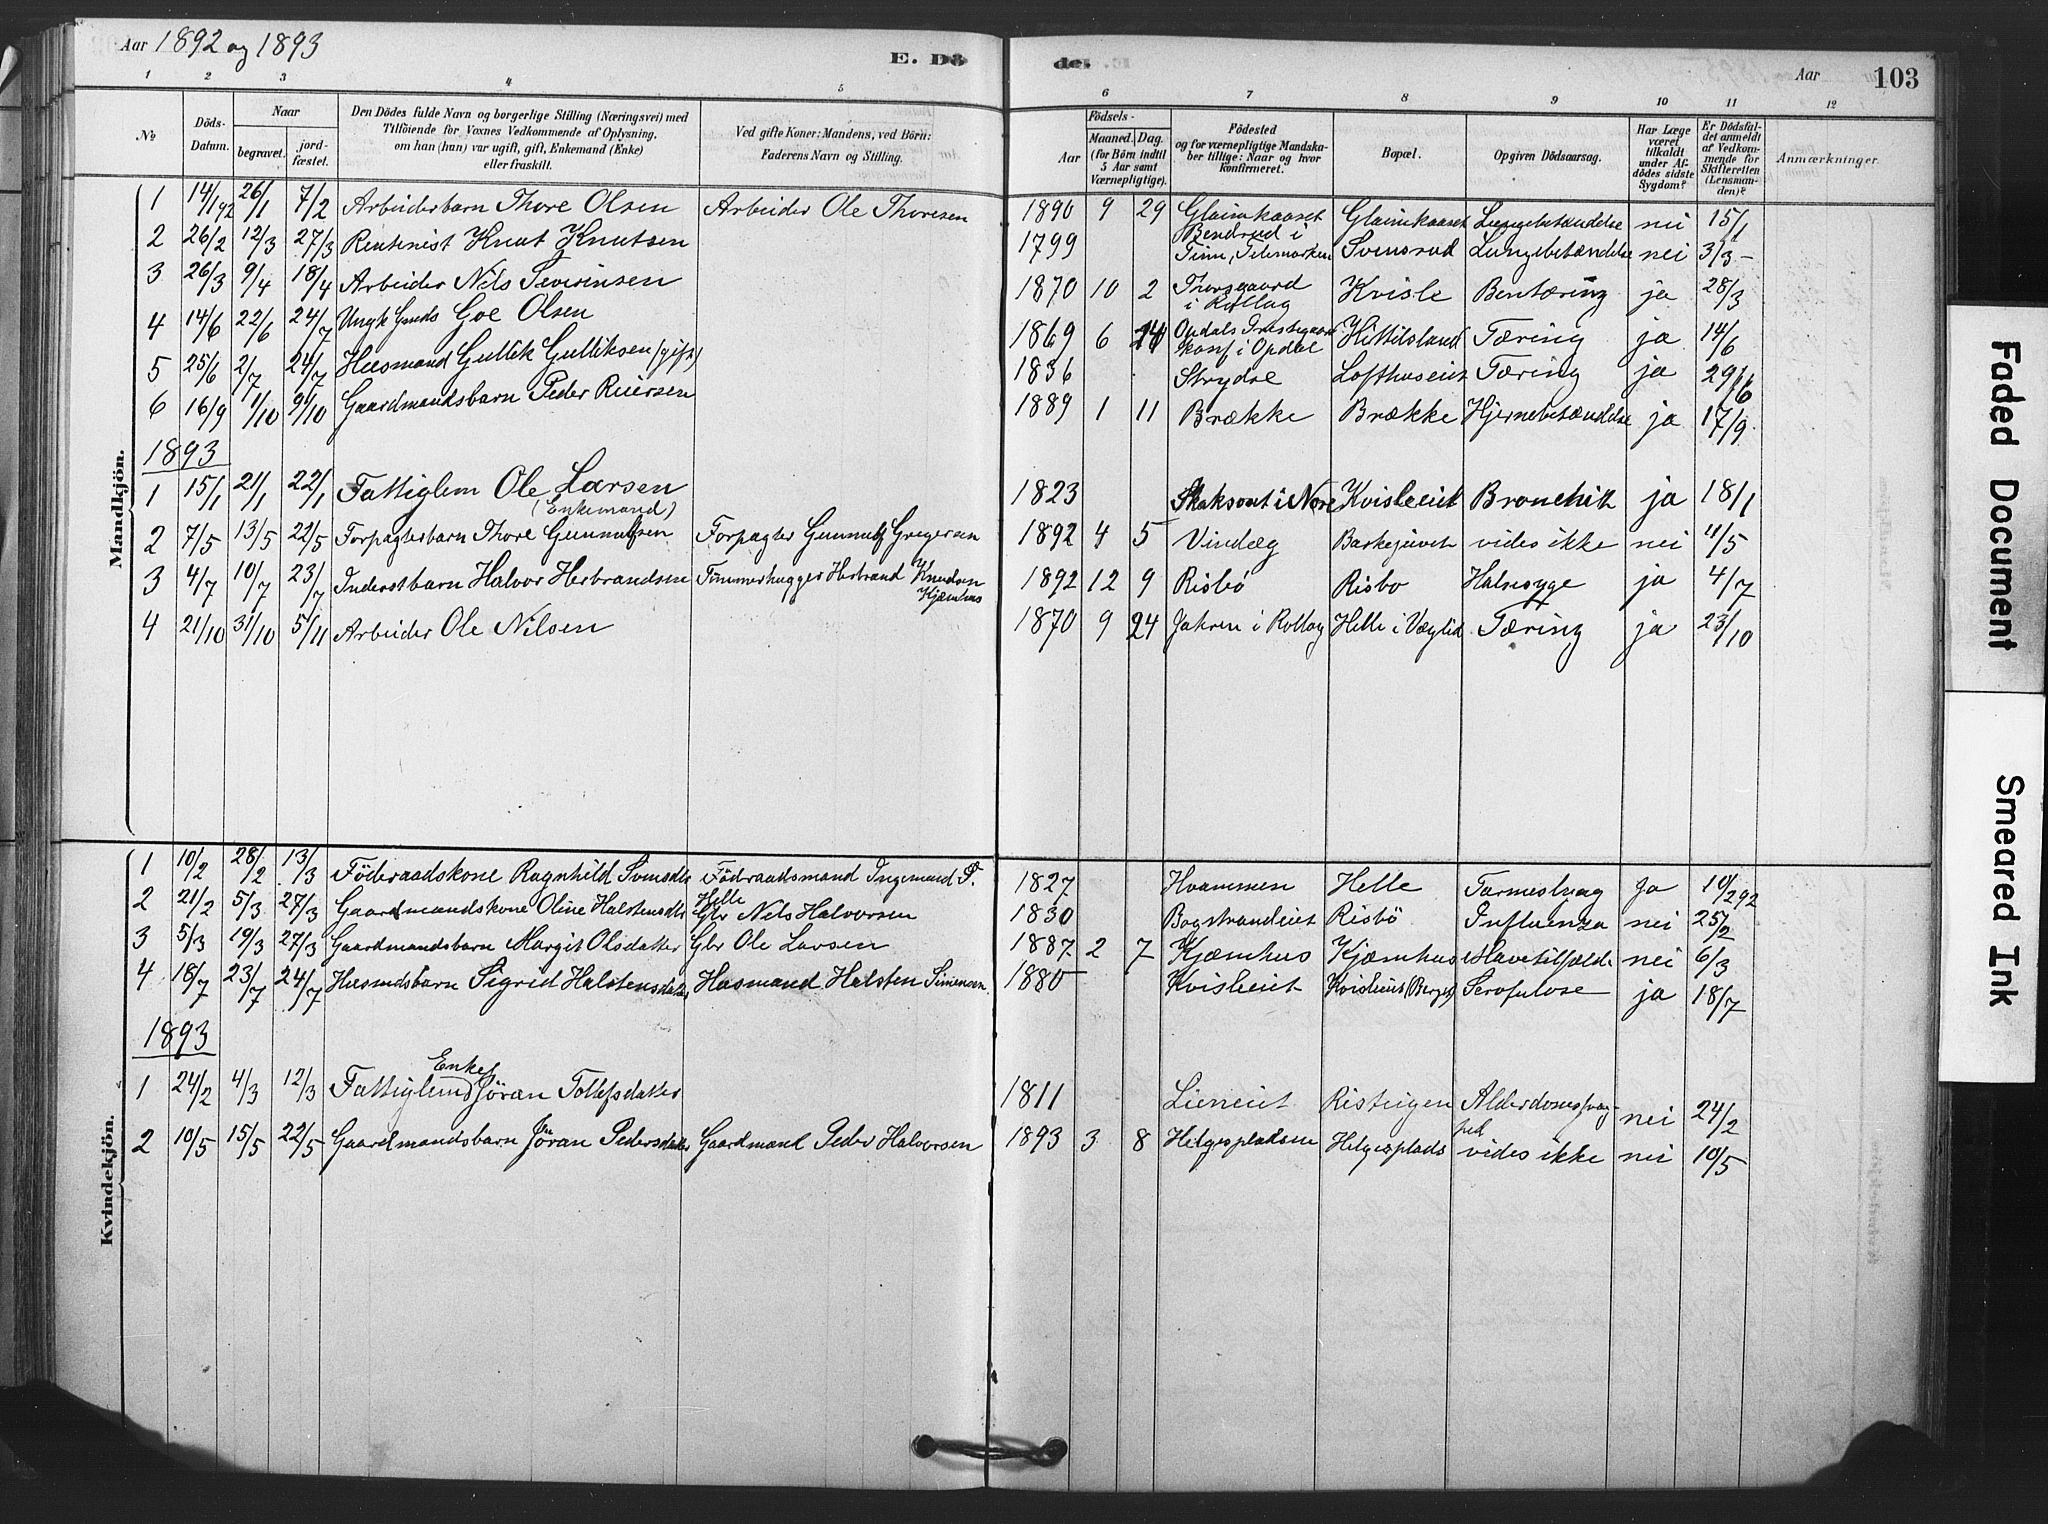 Aar 1892 og 1893
E. Dö
de.
Aar
103
1 2 3 4 5 6 7 8 9 10 11 12
No
Döds-Datum.
Naar
begravet.
jordfæstet.
Den Dödes fulde Navn og borgerlige Stilling (Næringsvei) med
Tilföiende for Voxnes Vedkommende af Oplysning,
om han (hun) var ugift, gift, Enkemand (Enke)
eller fraskilt.
Ved gifte Koner: Mandens, ved Börn:
Faderens Navn og Stilling.
Födsels-
Aar
Maaned. Dag.
(for Börn indtil
5 Aar samt
Værnepligtige).
Födested
og for værnepligtige Mandska-
ber tillige: Naar og hvor
konfirmeret.
Bopæl.
Opgiven Dödsaarsag.
Har Læge
været
tilkaldt
under Af-
dödes sidste
Sygdom?
Er Dödsfal-
det anmeldt
af Vedkom-
mende for
Skifteretten
(Lensman-
den)?
Anmærkninger.
Mandkjön.
1 14/1 92 26/1 7/2 Arbeiderbarn Thore Olsen Arbeider Ole Thoresen 1890 9 29 Lungebetændelse nei 15/1
2 26/2 12/3 27/3 Knut Knutsen 1799 Bendrud i Tinn, Telemarken Svensrud Lungebetændelse nei 3/3
3 26/3 9/4 18/4 Arbeider Nils Severinsen 1870 10 2 Thorsgaard i Rollag Kvisle Bentæring ja 28/3
4 14/6 22/6 24/7 Olsen 1869 6 Opdals Prestegaard konf i Opdal Kittilsland Tæring ja 14/6
5 25/6 2/7 24/7 Husmand Gullik Gulliksen (gift) 1836 Strydse Lofthuseiet Tæring ja 29/6
6 16/9 1/10 9/10 Gaardmandsbarn Peder Reiersen 1889 1 11 Brække Brække Hjernebetændelse ja 17/9
1893
1 15/1 21/1 22/1 Fattiglem Ole Larsen (Enkemand) 1823 i Nore Kvisleeiet Bronchit ja 18/1
2 7/5 13/5 22/5 Forpagterbarn Thore Gunnulfsen Forpagter Gunnulf Gregersen 1892 4 5 Vindeg Barkejuvet vides ikke nei 11/5
3 4/7 10/7 23/7 Inderstbarn Halvor Herbrandsen Tømmerhugger Herbrand Knudsen Kjæmhus 1892 12 9 Risbö Risbo Halvsyge ja 4/7
4 21/10 31/10 5/11 Arbeider Ole Nilsen 1870 9 24 Jahren i Rollag Helle i Væglid Tæring ja 23/10
Kvindekjön.
1 10/2 28/2 13/3 Föderaadskone Ragnhild Svensdtr Föderaadsmand Ingemund P. Helle 1827 Hvammen Helle Tarmeslyng Ja 10/2 92
2 21/2 5/3 27/3 Gaardmandskone Oline Halstensdtr Gbr Nils Halvorsen 1830 Bogstrandeiet Risbö Influenza nei 25/2
3 5/3 19/3 27/3 Gaardmandsbarn Margit Olsdatter Gbr Ole Larsen 1887 2 7 Kjæmhus Kjæmhus Mavetilfælde nei 6/3
4 18/7 23/7 24/7 Husmdsbarn Sigrid Halstensdatter Husmand Halsten Simensen 1880 Kvisleeiet Kvisleeiet (Berget) Scrofulose ja 18/7
1893
1 24/2 4/3 12/3 Fattiglem Enke Jöran Tollefsdatter 1811 Lieneiet Risteigen Alderdomssvaghed nei 24/2
2 10/5 15/5 22/5 Gaardmandsbarn Jöran Pedersdatter Gaardmand Peder Halvorsen 1893 3 8 Helgespladsen Helgesplads vides ikke nei 10/5
Faded Document
Smeared Ink